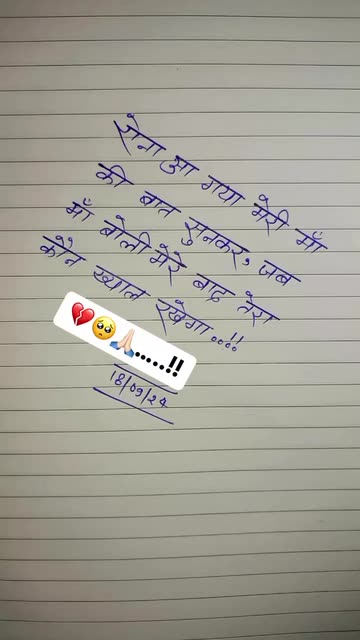 रोना आ गया मेरी माँ
की बात सुनकर, जब
माँ बोली मेरे बाद तेरा
कौन ख्याल रखेगा....!!
💔🥺🙏🏻.....!!
18/09/24